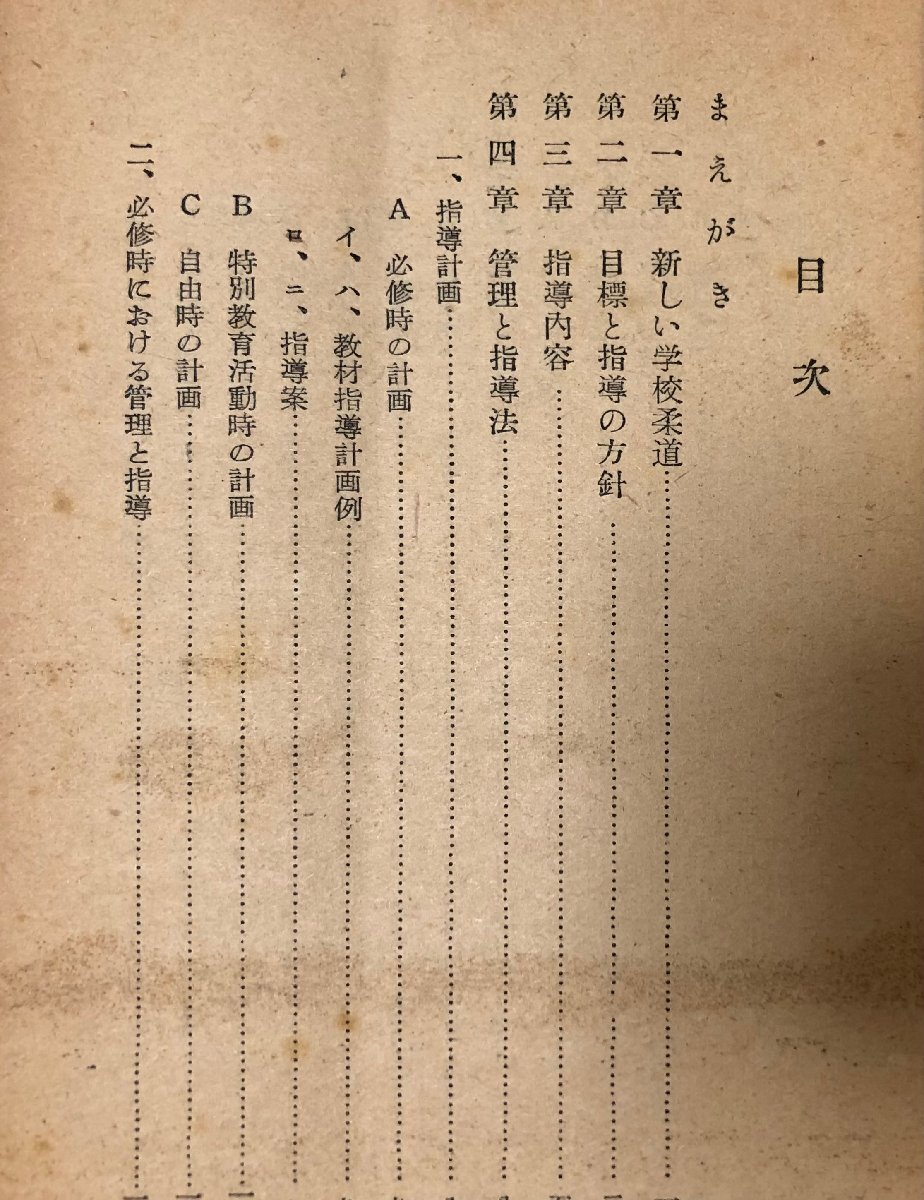 目次
まえがき
第一章 新しい学校柔道
第二章 目標と指導の方針
第三章 指導内容
第四章 管理と指導法
一、指導計画
A 必修時の計画
イ、ハ、教材指導計画例
ロ、ニ、指導案
B 特別教育活動時の計画
C 自由時の計画
二、必修時における管理と指導